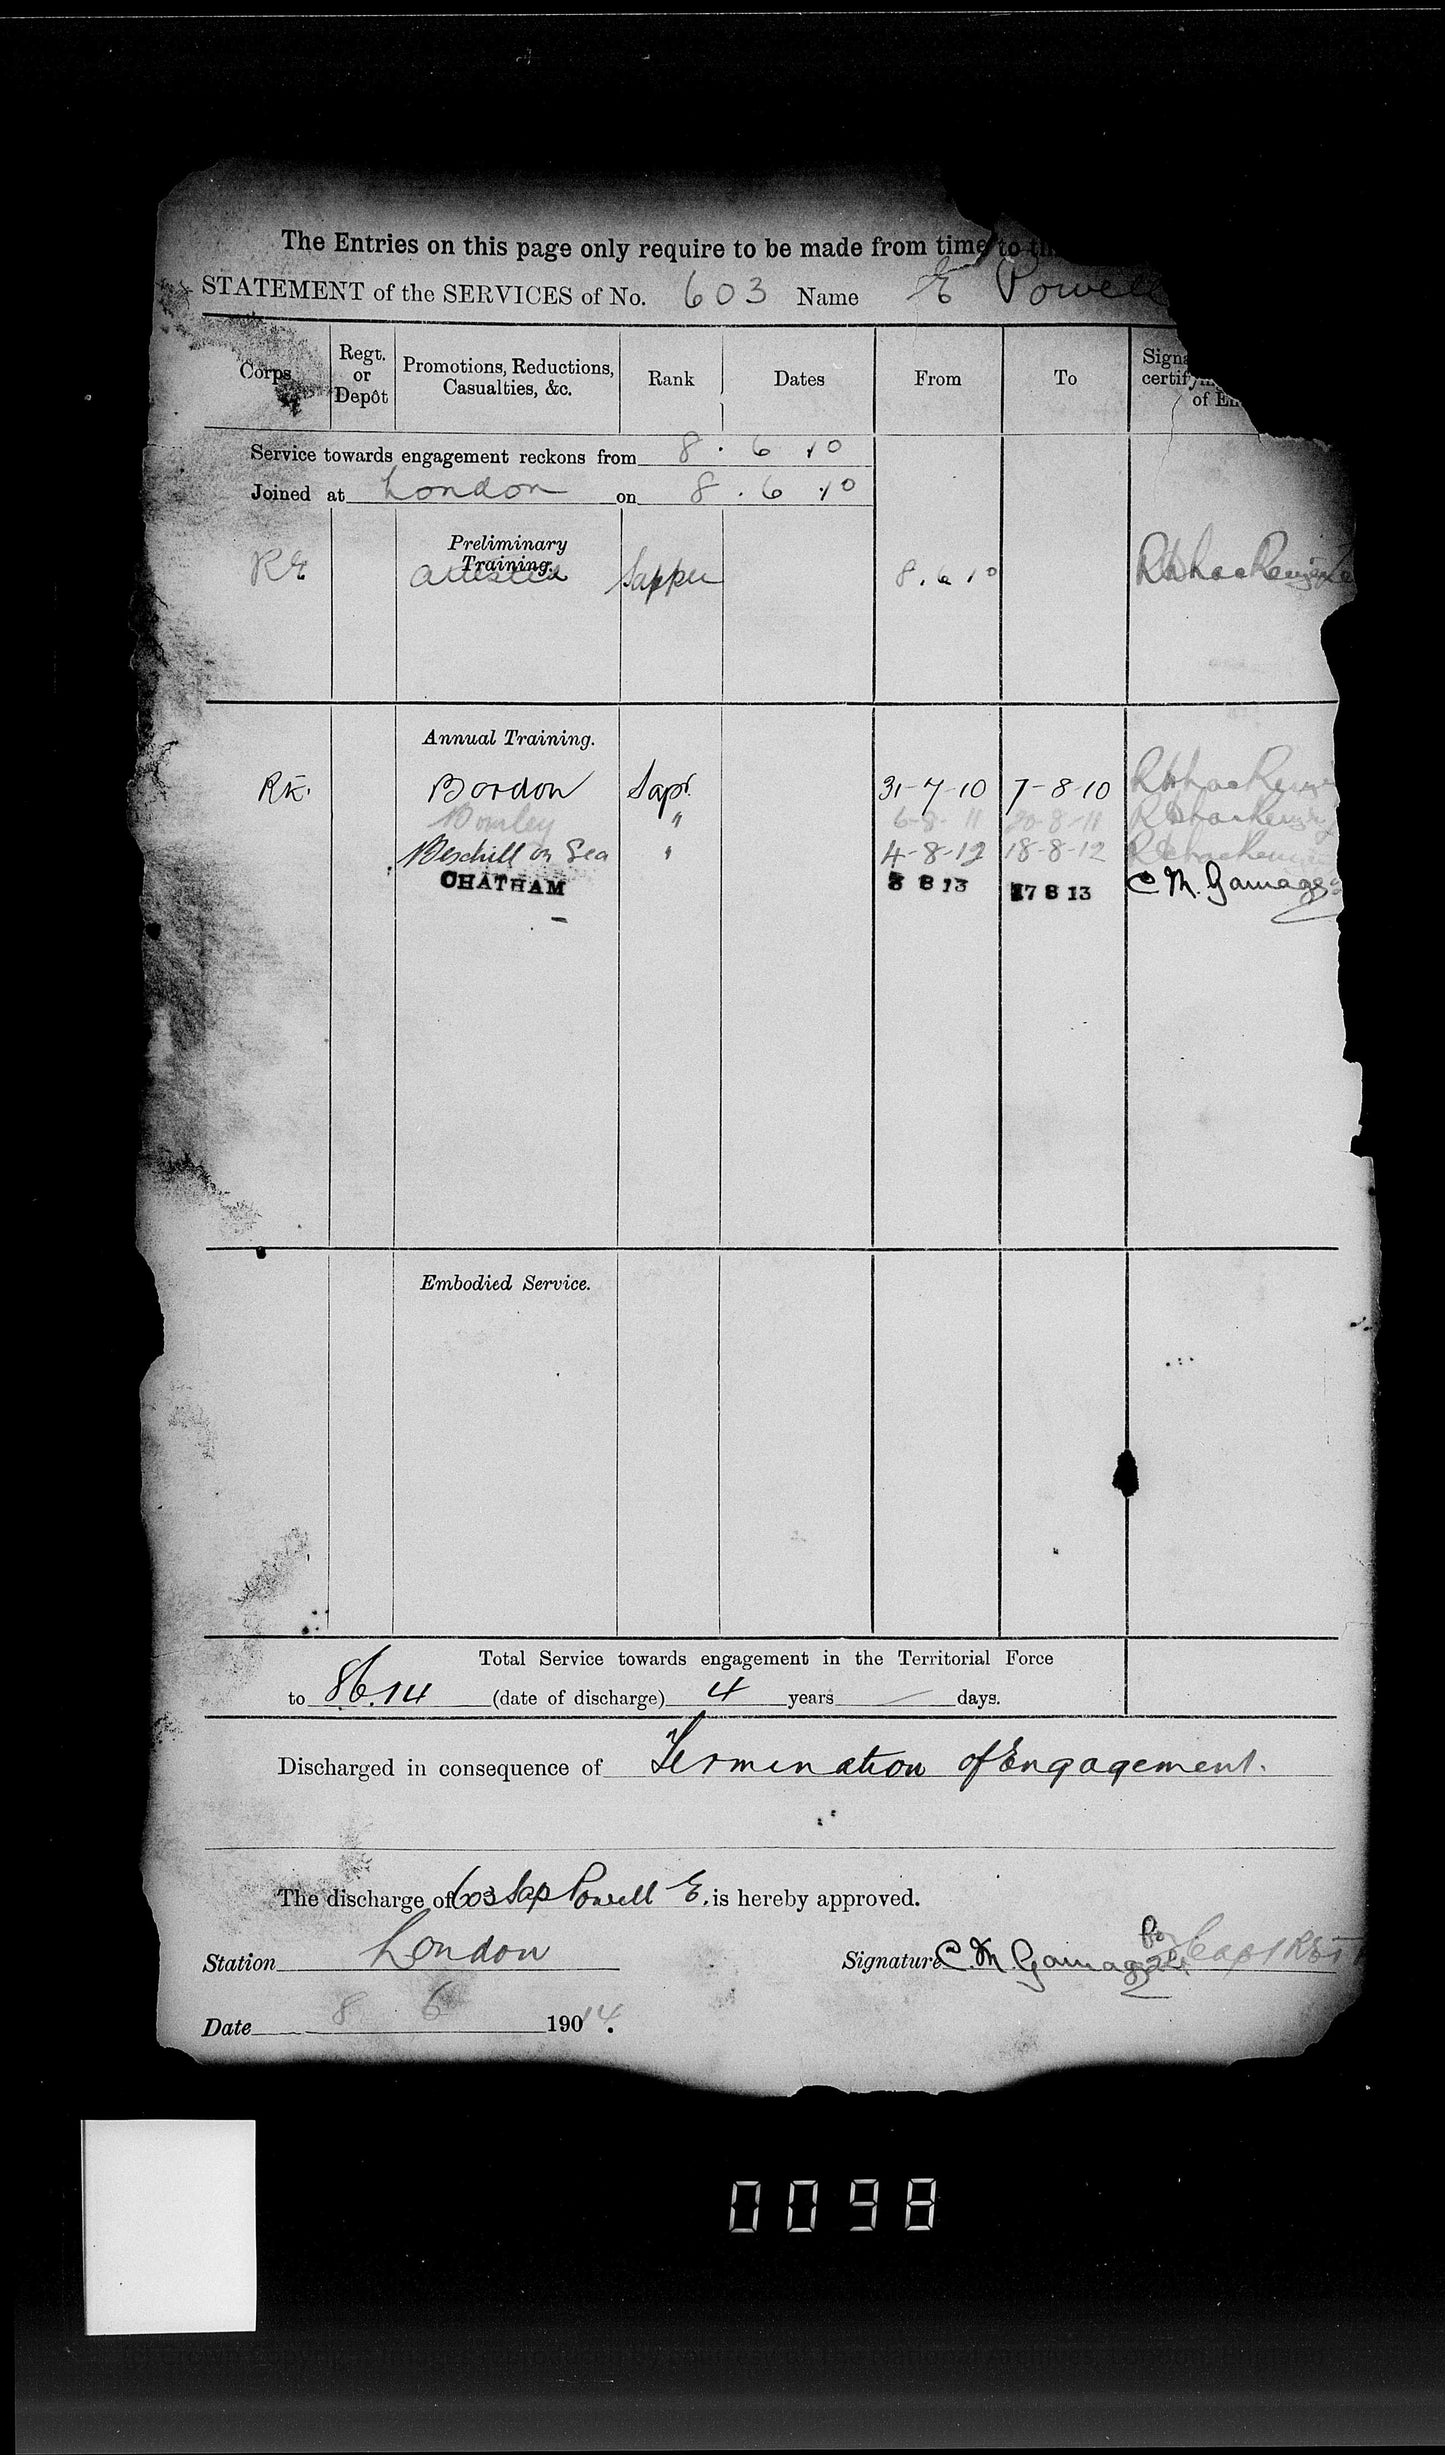 The Entries on this page only require to be made from time to th
STATEMENT of the SERVICES of No. 603 Name E Powell
Corps
Regt. or Depôt
Promotions, Reductions, Casualties, &c.
Rank
Dates
From
To
Signa
certifying
of En
Service towards engagement reckons from 8 . 6 10
Joined at London on 8 . 6 .10
Preliminary
Training.
RE attested Sapper 8.6.10
Annual Training.
RE. Bordon Sapr. 31-7-10 7-8-10
" 6-8-11 20-8-11
Bexhill on Sea " 4-8-12 18-8-12
CHATHAM 3 8 13 17 8 13 C M. Gamage
Embodied Service.
Total Service towards engagement in the Territorial Force
to 8.6.14 (date of discharge) 4 years — days.
Discharged in consequence of Termination of Engagement.
The discharge of 603 Sap Powell E. is hereby approved.
Station London Signature C. M. Gamage Capt RE
Date 8 6 190 14.
0098